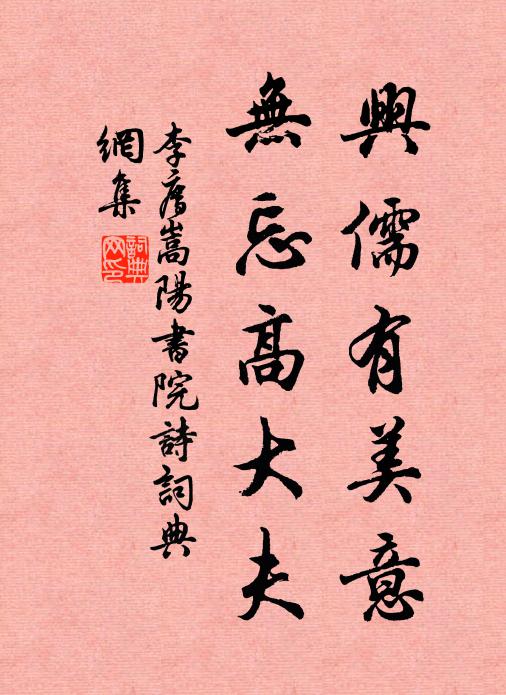 興儒有美意
無忘高大夫
李廌嵩陽書院詩詞典
網集
詞典網印